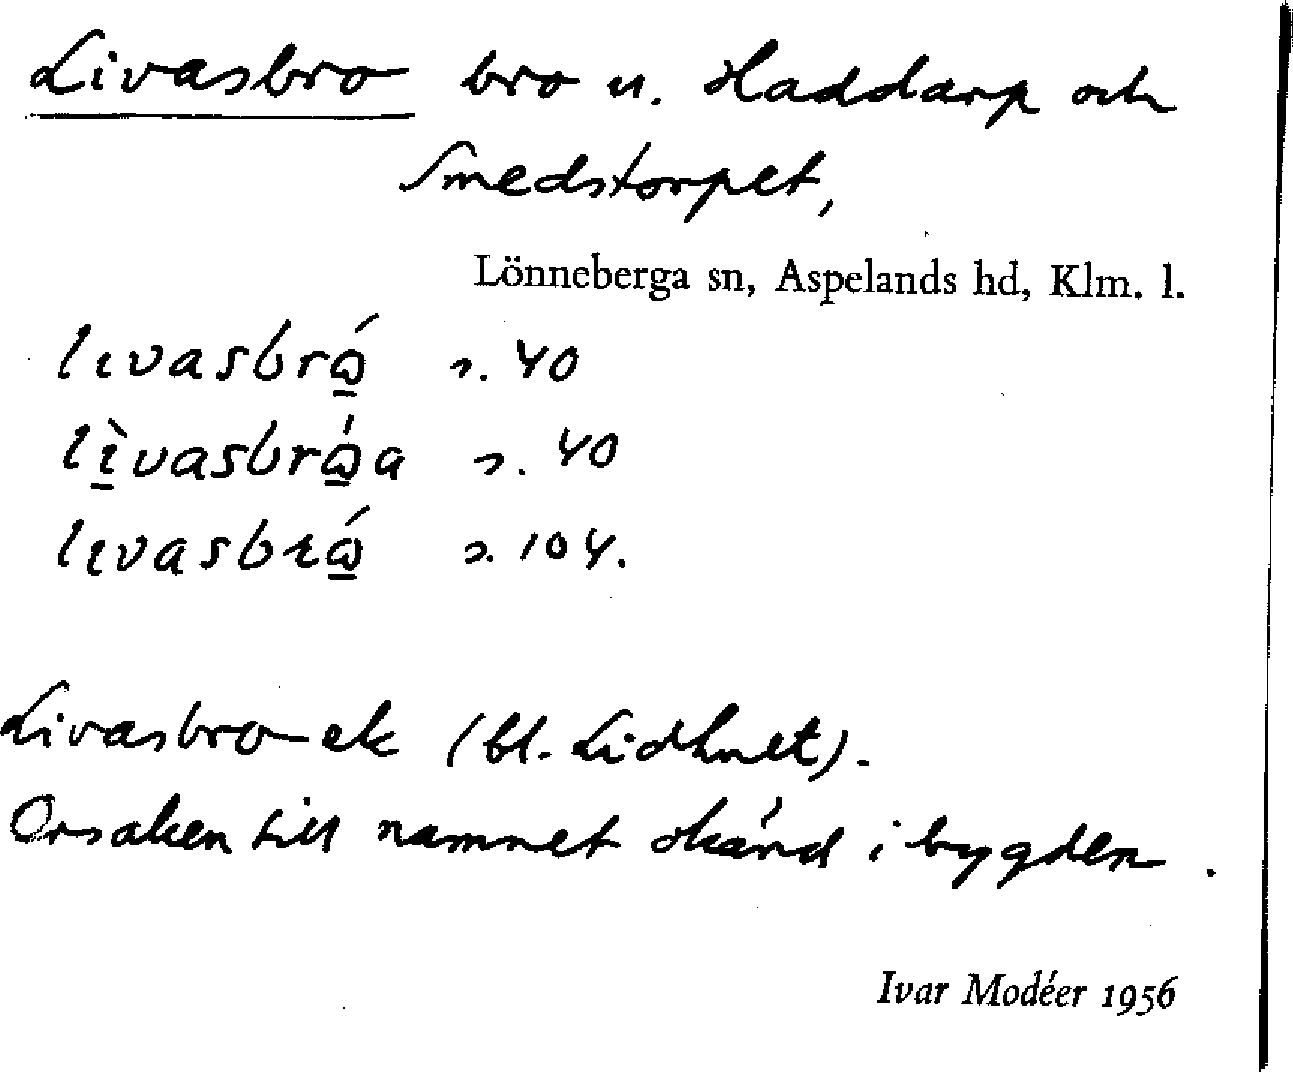 Livasbro bro u. Haddarp och
Smedstorpet,
Lönneberga sn, Aspelands hd, Klm. l.
lıvasbrώ̲ s. 40
lı̲̀vasbrώ̲a s. 40
lıvasbrώ̲ s. 104.
Livasbro-ek (bl. Lidhult).
Orsaken till namnet okänd i bygden.
Ivar Modéer 1956